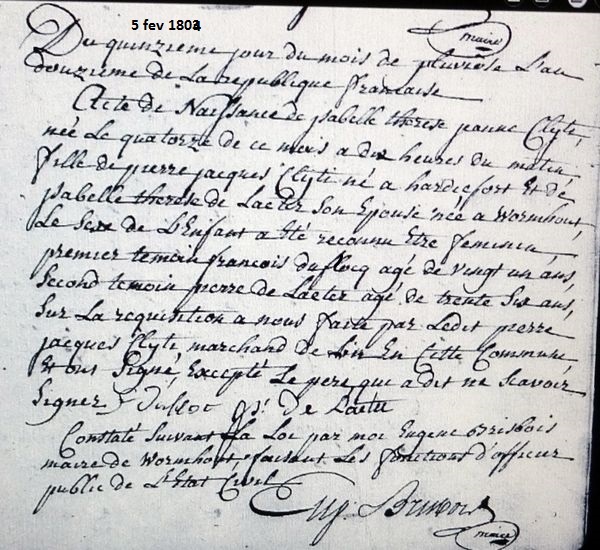 5 fev 1804
maire
Du quinzieme jour du mois de pluviose L'an
douzieme de La republique francaise
Acte de Naissance de ysabelle therese Clyti,
née Le quatorze de ce mois a dix heures du matin
fille de pierre jacques Clyti né a hardiefort Et de
ysabelle therese de Laeter Son Epouse née a Wormhout,
Le Sexe de L'Enfant a Eté reconnu Etre feminin,
premier temoin francois duflocq agé de vingt un ans,
Second temoin pierre de Laeter agé de trente Six ans,
Sur La requisition a nous faite par Ledit pierre
jacques Clyti marchand de En Cette Commune
Et ont Signé, Excepté Le pere que a dit ne Scavoir
Signer de Laeter
Constaté Suivant La Loi par moi Eugene Brisbois
maire de Wormhout, faisant Les fonctions d'officier
public de L'Etat Civil
Eug. Brisbois
maire